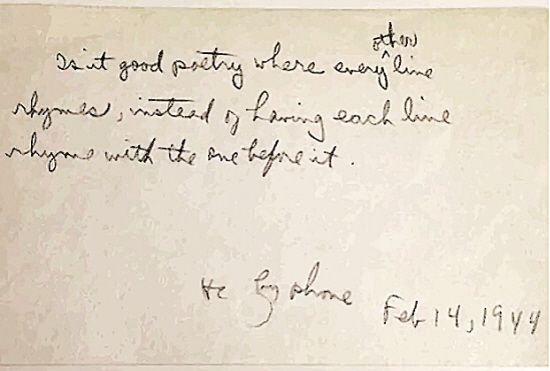 other
Is it good poetry where every ^ line
rhymes, instead of having each line
rhyme with the one before it.
Hc by phone
Feb 14, 1944